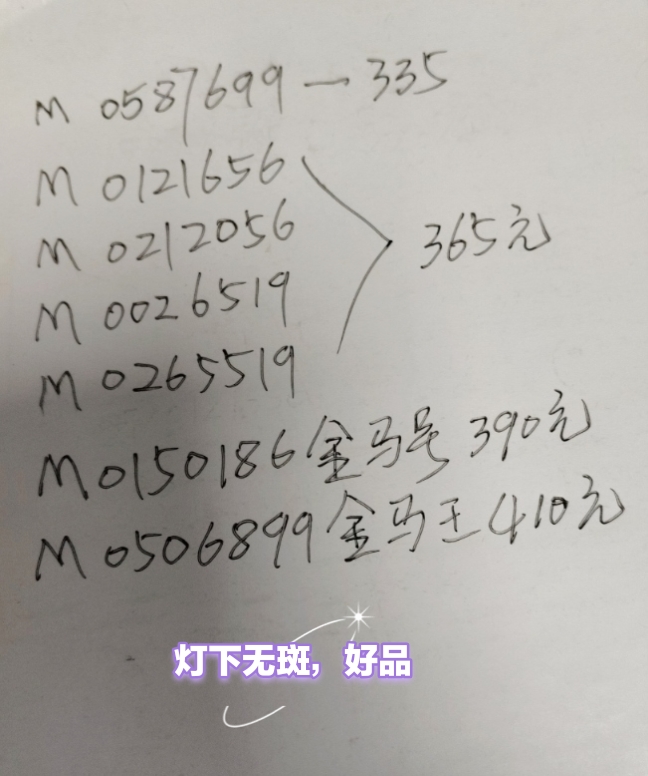 M 0587699 — 335
M 0121656
M 0212056
365元
M 0026519
M 0265519
M0150186金马号 390元
M 0506899金马王 410元
灯下无斑，好品